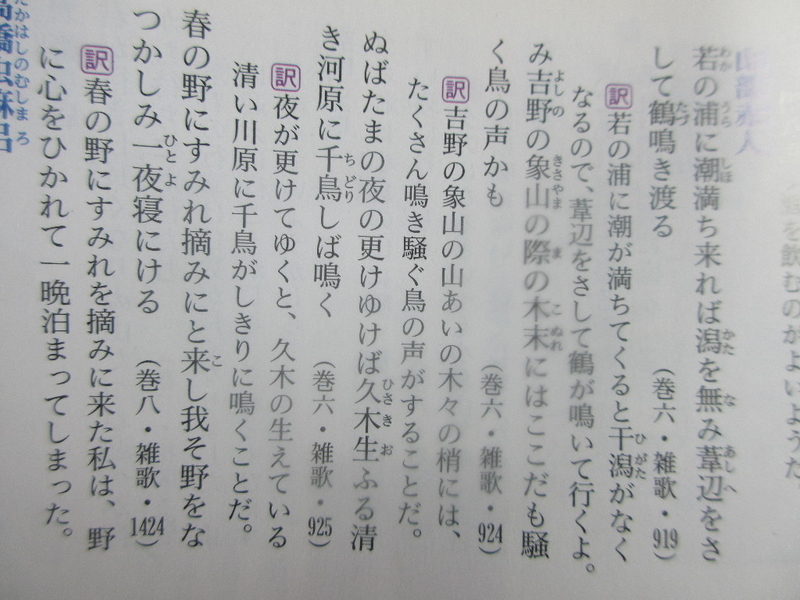 を飲むのがよいようだ
山部赤人
若の浦に潮満ち来れば潟を無み葦辺をさ
して鶴鳴き渡る　（巻六・雑歌・919）
訳 若の浦に潮が満ちてくると干潟がなく
なるので、葦辺をさして鶴が鳴いて行くよ。
み吉野の象山の際の木末にはここだも騒
く鳥の声かも　（巻六・雑歌・924）
訳 吉野の象山の山あいの木々の梢には、
たくさん鳴き騒ぐ鳥の声がすることだ。
ぬばたまの夜の更けゆけば久木生ふる清
き河原に千鳥しば鳴く　（巻六・雑歌・925）
訳 夜が更けてゆくと、久木の生えている
清い川原に千鳥がしきりに鳴くことだ。
春の野にすみれ摘みにと来し我そ野をな
つかしみ一夜寝にける　（巻八・雑歌・1424）
訳 春の野にすみれを摘みに来た私は、野
に心をひかれて一晩泊まってしまった。
高橋虫麻呂